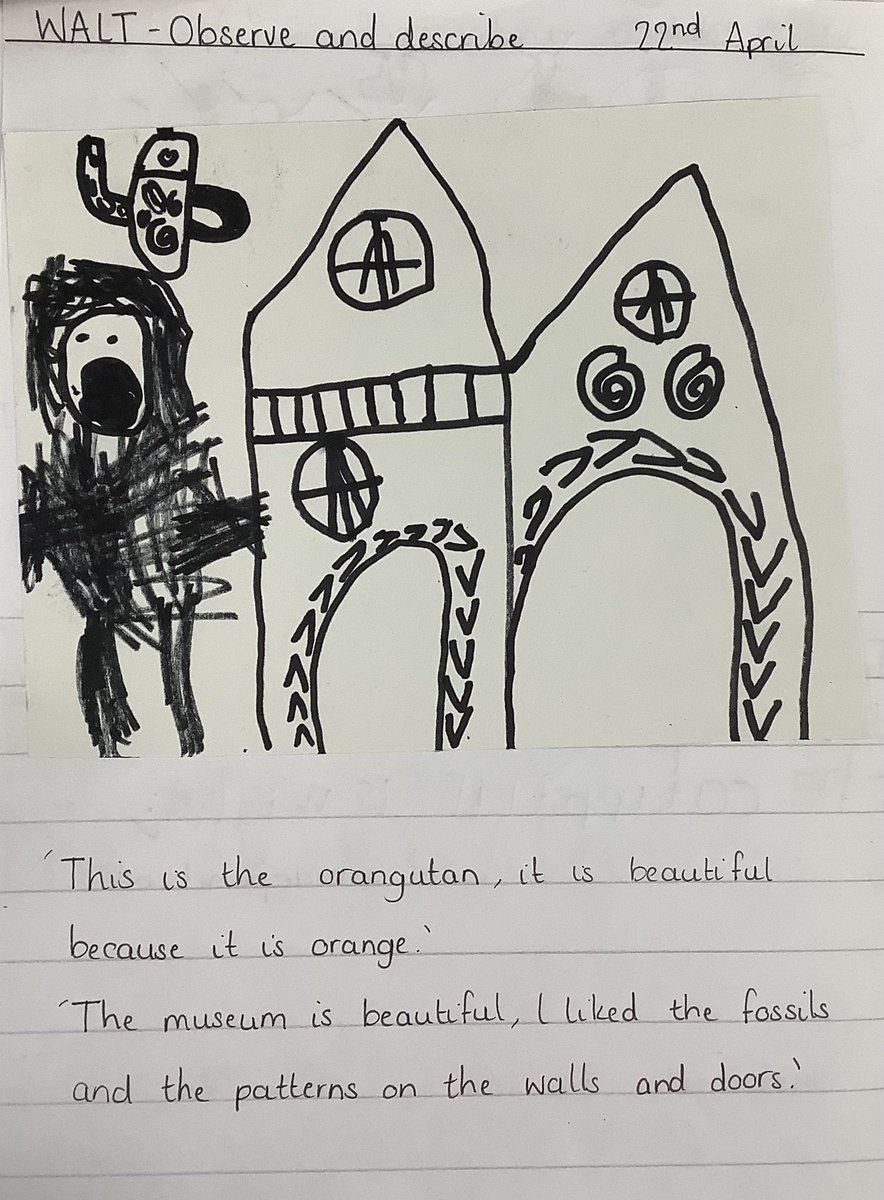 WALT - Observe and describe 22nd April
'This is the orangutan, it is beautiful
because it is orange.'
'The museum is beautiful, I liked the fossils
and the patterns on the walls and doors.'